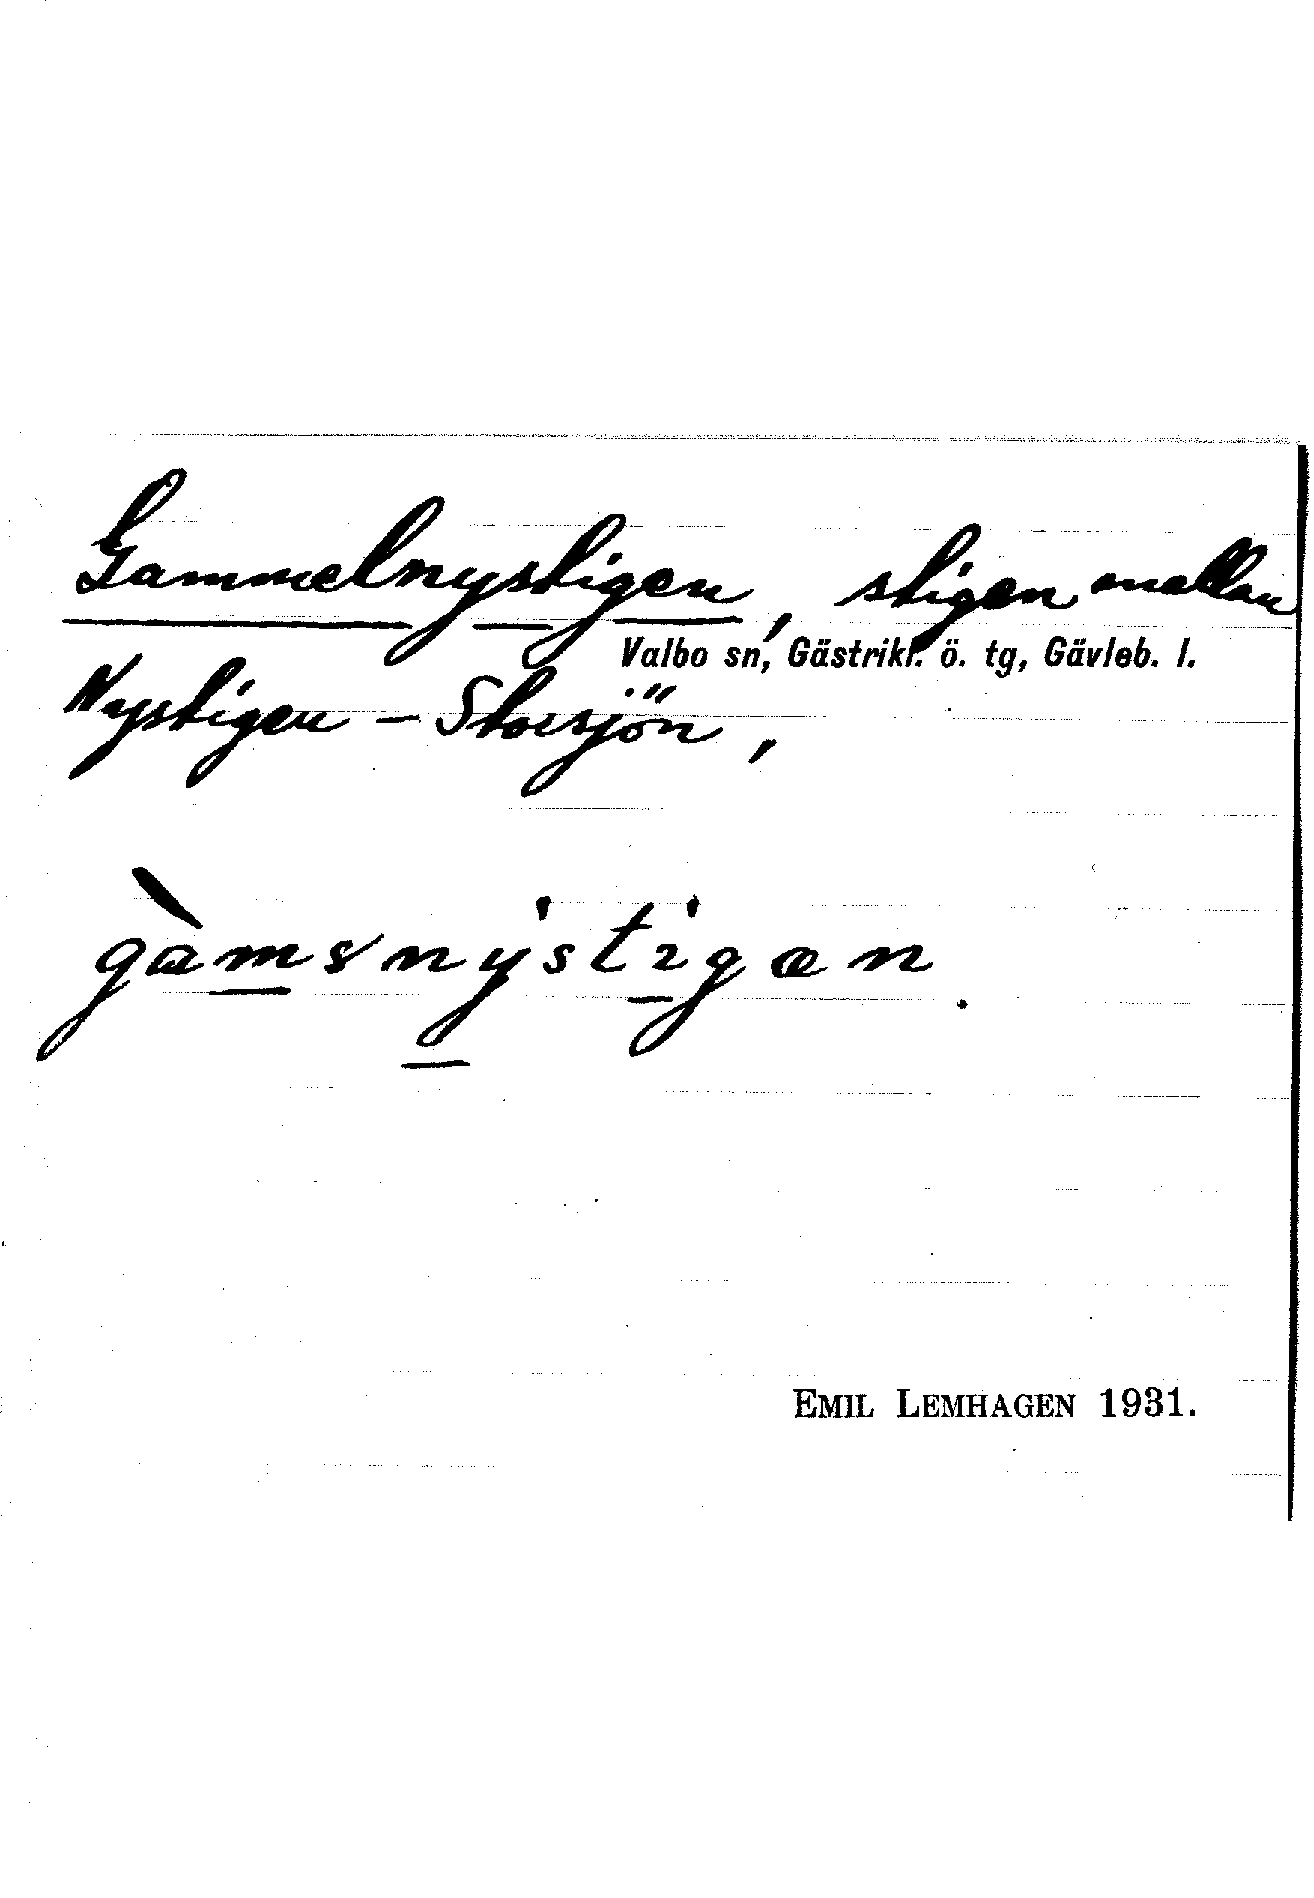 Gammelnystigen, stigen mellan
Valbo sn, Gästrikl. ö. tg, Gävleb. l.
Nystigen – Storsjön,
gàmsnýstigæn.
EMIL LEMHAGEN 1931.